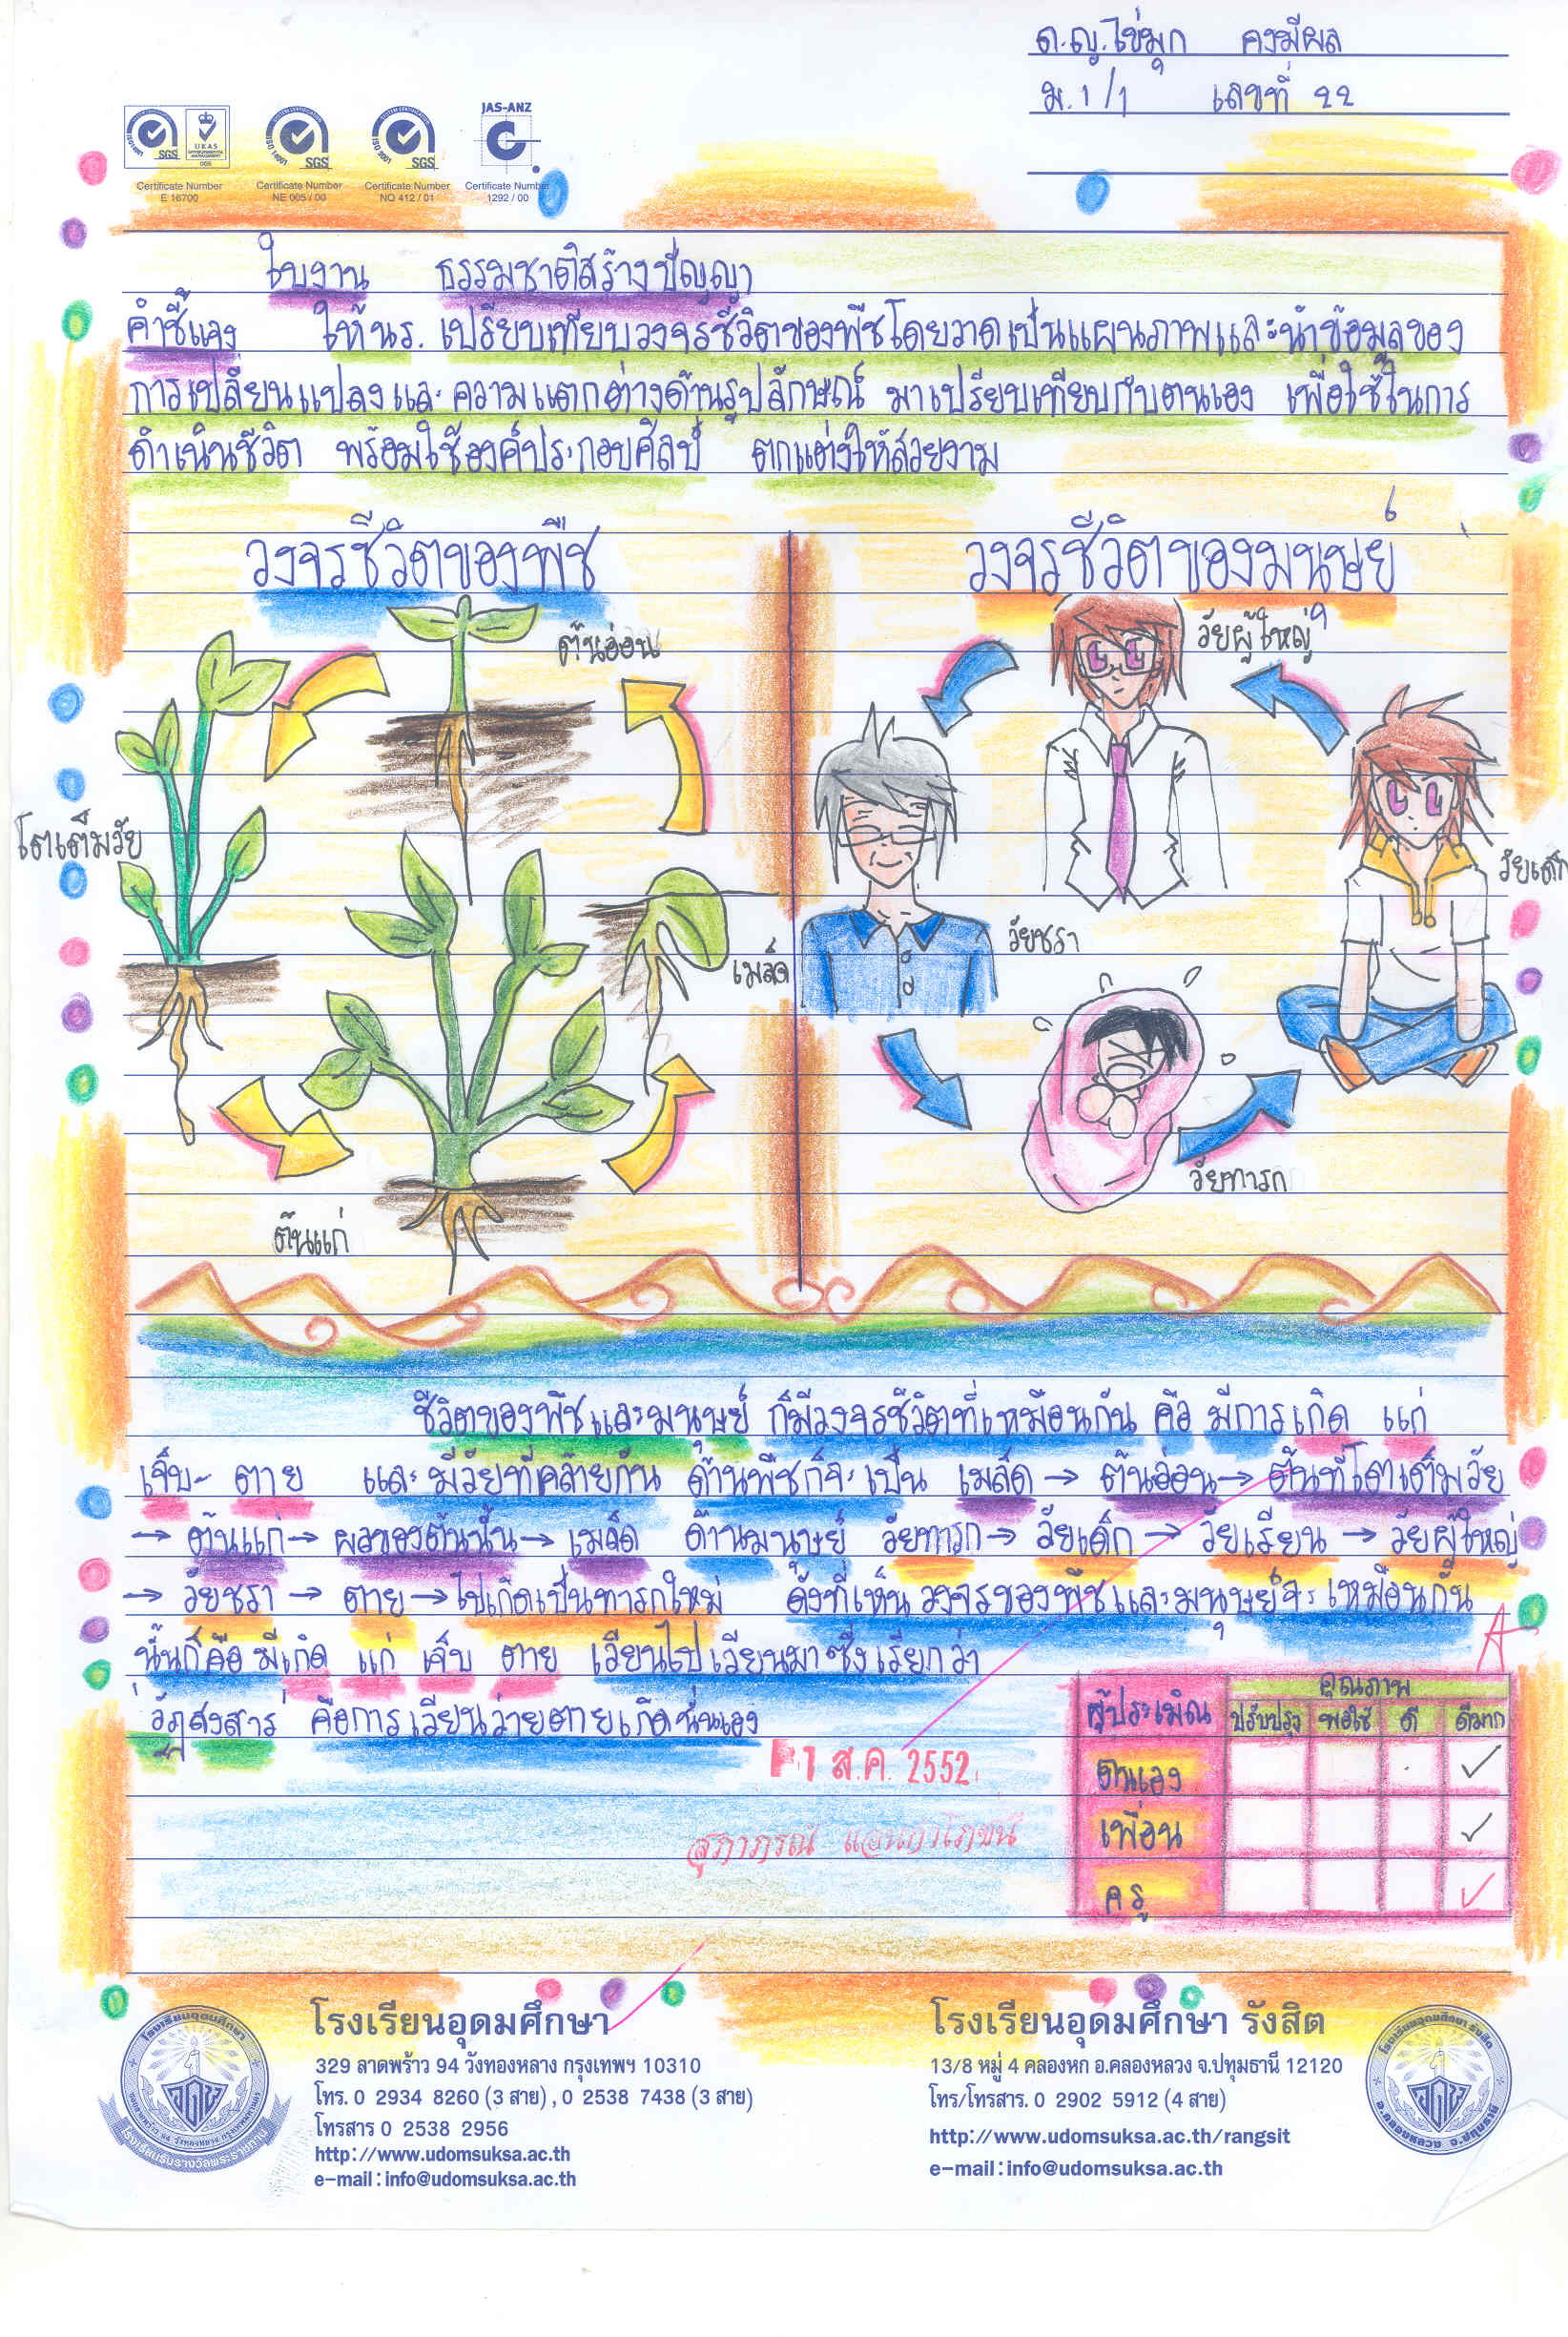 ด.ญ.ไข่มุก คงมีผล
ม.1/1 เลขที่ 22
JAS-ANZ
SGS UKAS SGS SGS
Certificate Number Certificate Number Certificate Number Certificate Number
E 16700 NE 005 / 00 NQ 412 / 01 1292 / 00
ใบงาน ธรรมชาติสร้างปัญญา
คำชี้แจง ให้นร. เปรียบเทียบวงจรชีวิตของพืชโดยวาดเป็นแผนภาพและนำข้อมูลของ
การเปลี่ยนแปลงและความแตกต่างด้านรูปลักษณ์ มาเปรียบเทียบกับตนเอง เพื่อใช้ในการ
ดำเนินชีวิต พร้อมใช้องค์ประกอบศิลป์ ตกแต่งให้สวยงาม
วงจรชีวิตของพืช วงจรชีวิตของมนุษย์
ต้นอ่อน
โตเต็มวัย
เมล็ด
ต้นแก่
วัยผู้ใหญ่
วัยเด็ก
วัยชรา
วัยทารก
ชีวิตของพืชและมนุษย์ ก็มีวงจรชีวิตที่เหมือนกัน คือ มีการเกิด แก่
เจ็บ ตาย และ มีวัยที่คล้ายกัน ด้านพืชก็จะเป็น เมล็ด → ต้นอ่อน → ต้นที่โตเต็มวัย
→ ต้นแก่ → ผลของต้นนั้น → เมล็ด ด้านมนุษย์ วัยทารก → วัยเด็ก → วัยเรียน → วัยผู้ใหญ่
→ วัยชรา → ตาย → ไปเกิดเป็นทารกใหม่ ดังที่เห็น วงจรของพืชและมนุษย์จะเหมือนกัน
นั้นก็คือ มีเกิด แก่ เจ็บ ตาย เวียนไปเวียนมาซึ่งเรียกว่า
วัฏสงสาร คือการเวียนว่ายตายเกิดนั่นเอง
A
ผู้ประเมิณ คุณภาพ
ปรับปรุง พอใช้ ดี ดีมาก
ตนเอง ✓
เพื่อน ✓
ครู ✓
1 ส.ค. 2552
สุภาภรณ์
โรงเรียนอุดมศึกษา
329 ลาดพร้าว 94 วังทองหลาง กรุงเทพฯ 10310
โทร. 0 2934 8260 (3 สาย) , 0 2538 7438 (3 สาย)
โทรสาร 0 2538 2956
http://www.udomsuksa.ac.th
e-mail : info@udomsuksa.ac.th
โรงเรียนอุดมศึกษา รังสิต
13/8 หมู่ 4 คลองหก อ.คลองหลวง จ.ปทุมธานี 12120
โทร/โทรสาร. 0 2902 5912 (4 สาย)
http://www.udomsuksa.ac.th/rangsit
e-mail : info@udomsuksa.ac.th